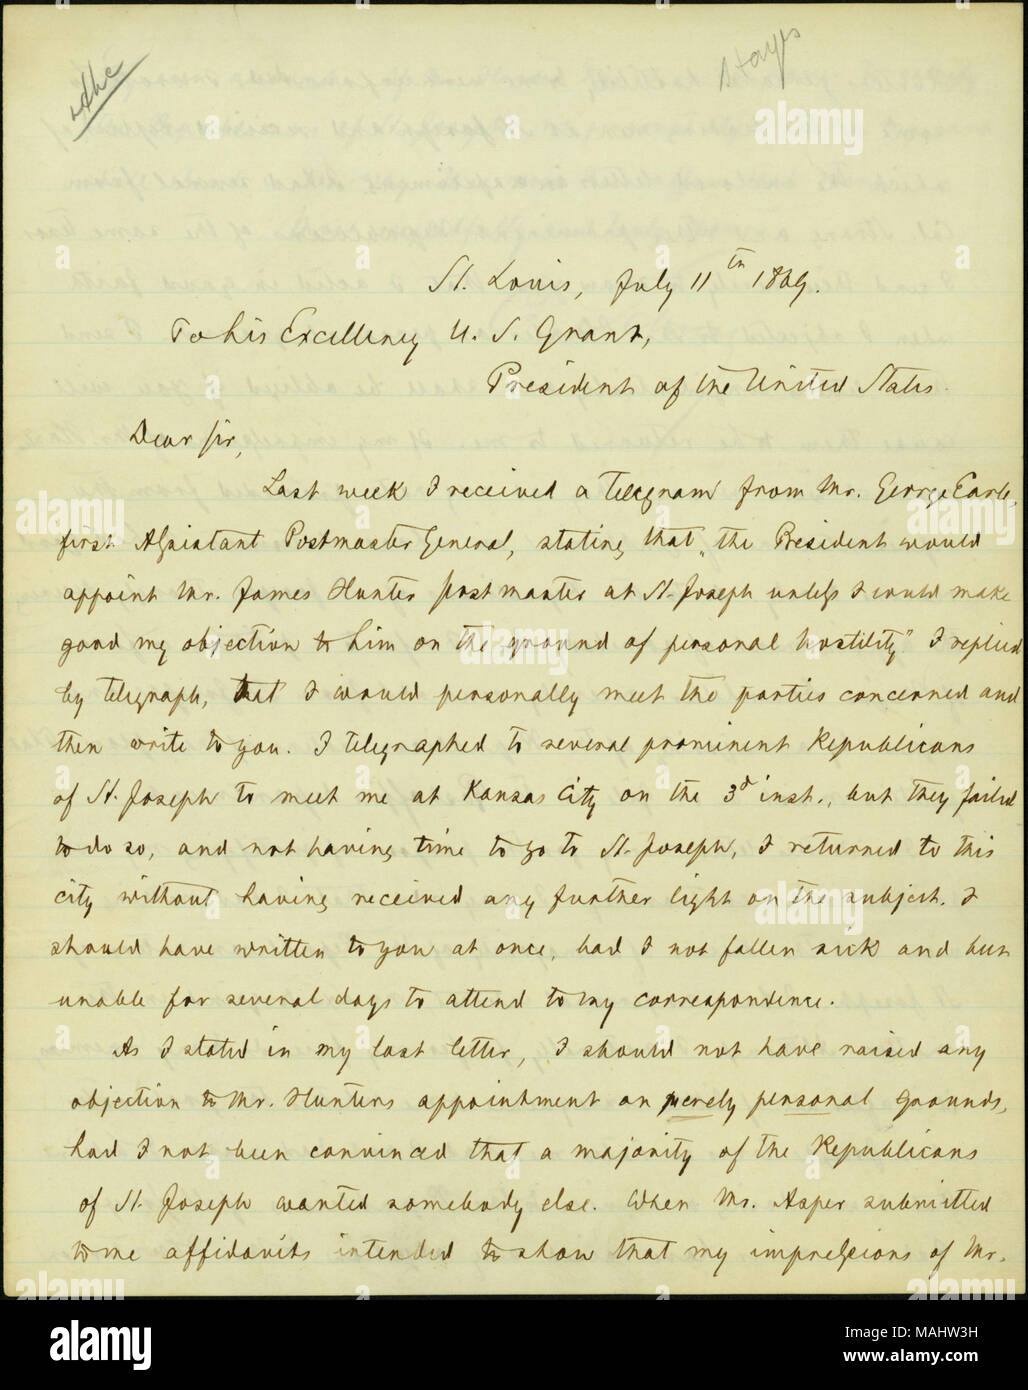 Hays
St. Louis, July 11th 1869.
To his Excellency U. S. Grant,
President of the United States.
Dear Sir,
Last week I received a telegram from Mr. George Earle,
first Assistant Postmaster General, stating that "the President would
appoint Mr. James Hunter postmaster at St. Joseph unless I could make
good my objection to him on the ground of personal hostility." I replied
by telegraph, that I would personally meet the parties concerned and
then write to you. I telegraphed to several prominent Republicans
of St. Joseph to meet me at Kansas City on the 3d inst., but they failed
to do so, and not having time to go to St. Joseph, I returned to this
city without having received any further light on the subject. I
should have written to you at once, had I not fallen sick and been
unable for several days to attend to my correspondence.
As I stated in my last letter, I should not have raised any
objection to Mr. Hunters appointment on merely personal grounds,
had I not been convinced that a majority of the Republicans
of St. Joseph wanted somebody else. When Mr. Asper submitted
to me affidavits intended to show that my impressions of Mr.
alamy
alamy
Image ID: MAHW3H
www.alamy.com